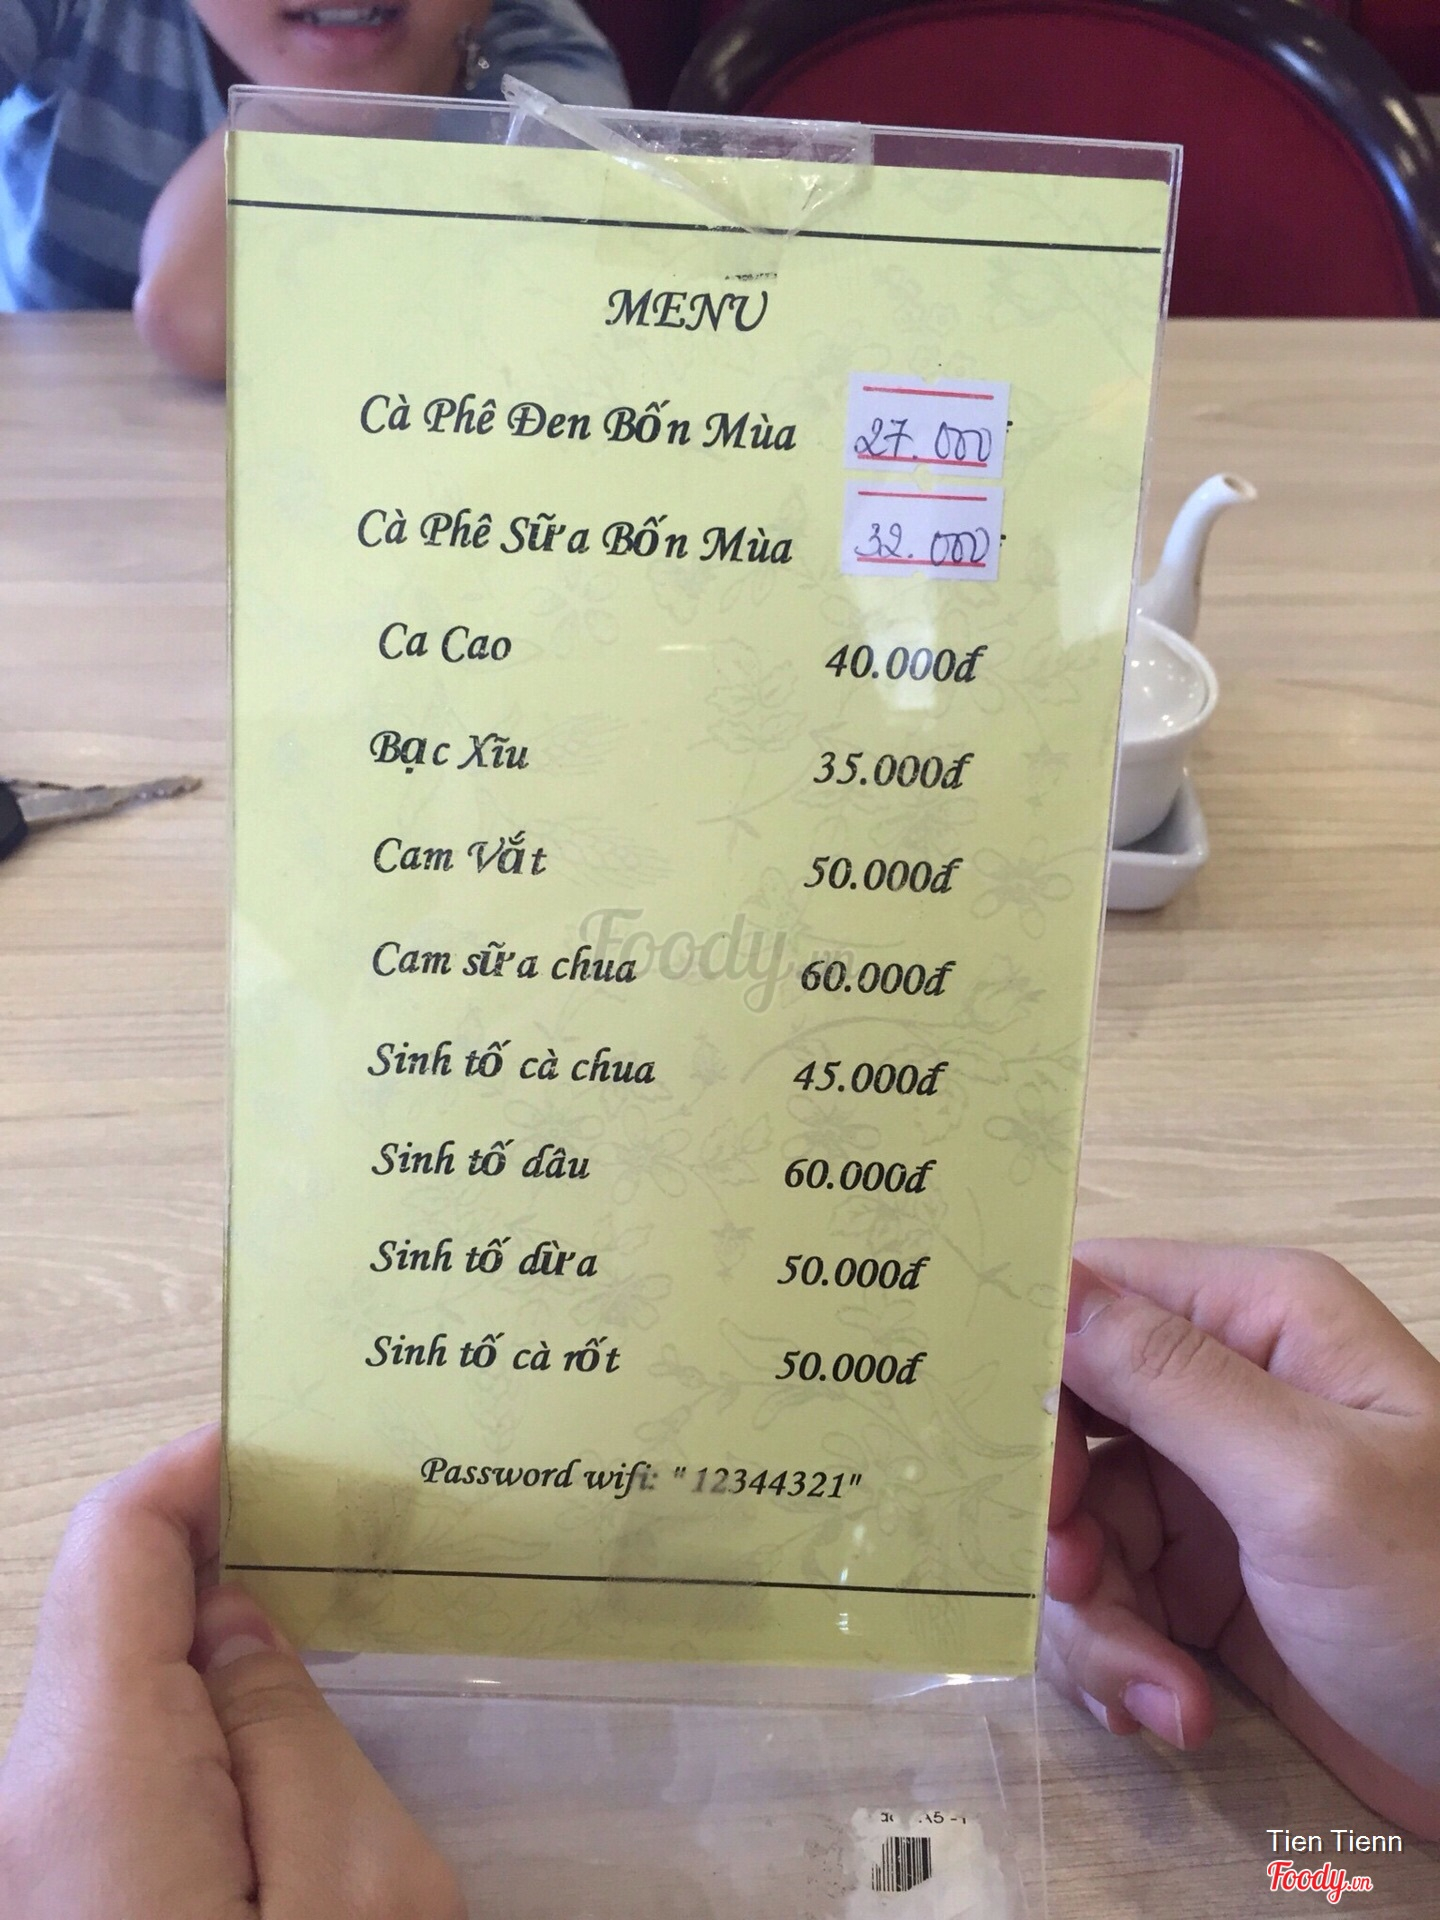 MENU
Cà Phê Đen Bốn Mùa 27.000
Cà Phê Sữa Bốn Mùa 32.000
Ca Cao 40.000đ
Bạc Xĩu 35.000đ
Cam Vắt 50.000đ
Cam sữa chua 60.000đ
Sinh tố cà chua 45.000đ
Sinh tố dâu 60.000đ
Sinh tố dừa 50.000đ
Sinh tố cà rốt 50.000đ
Password wifi: "12344321"
Foody.vn
A5 -1
Tien Tienn
Foody.vn